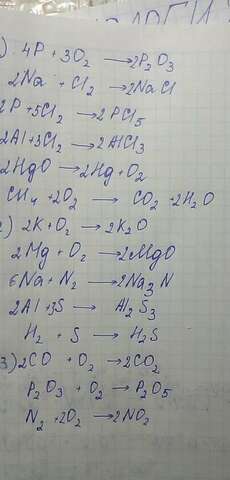 ) 4P + 3O₂ → 2P₂O₃
2Na + Cl₂ → 2NaCl
2P + 5Cl₂ → 2PCl₅
2Al + 3Cl₂ → 2AlCl₃
2HgO → 2Hg + O₂
CH₄ + 2O₂ → CO₂ + 2H₂O
2) 2K + O₂ → 2K₂O
2Mg + O₂ → 2MgO
6Na + N₂ → 2Na₃N
2Al + 3S → Al₂S₃
H₂ + S → H₂S
3) 2CO + O₂ → 2CO₂
P₂O₃ + O₂ → P₂O₅
N₂ + 2O₂ → 2NO₂